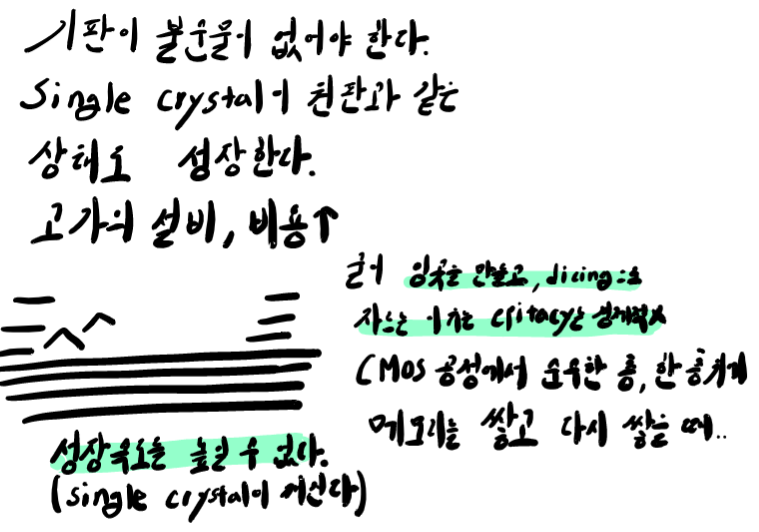 기판이 불순물이 없어야 한다.
Single crystal이 원판과 같은
상태로 성장한다.
고가의 설비, 비용↑
굳이 잉곳을 만들고, dicing으로
자르는 이유는 epitaxy는 경제적x
CMOS 공정에서 순수한 층, 한 층위에
메모리를 쌓고 다시 쌓을 때..
성장속도를 높일 수 없다.
(single crystal이 깨진다)